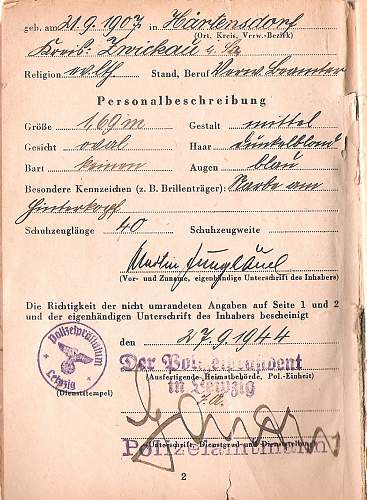 geb. am 21.9.1907 in Härtensdorf
(Ort, Kreis, Verw.-Bezirk)
Kreis: Zwickau i./Sa
Religion ev. lth Stand, Beruf Verw. Beamter
Personalbeschreibung
Größe 1,69 m Gestalt mittel
Gesicht oval Haar dunkelblond
Bart keinen Augen blau
Besondere Kennzeichen (z. B. Brillenträger): Narbe am
Hinterkopf
Schuhzeuglänge 40 Schuhzeugweite
Martin
(Vor- und Zuname, eigenhändige Unterschrift des Inhabers)
Die Richtigkeit der nicht umrandeten Angaben auf Seite 1 und 2
und der eigenhändigen Unterschrift des Inhabers bescheinigt
den 27.9.1944
Polizeipräsidium
Leipzig
Der Polizeipräsident
(Ausfertigende Heimatbehörde, Pol.-Einheit)
in Leipzig
(Dienststempel)
Unterschrift, Dienstgrad und Dienststellung
Polizeiamtmann
2